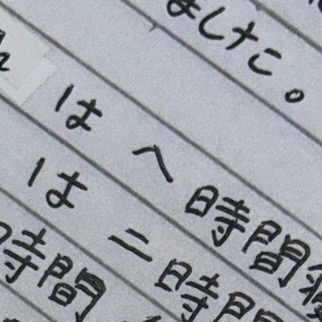 ました。
は へ 時間
は 二 時間
時間